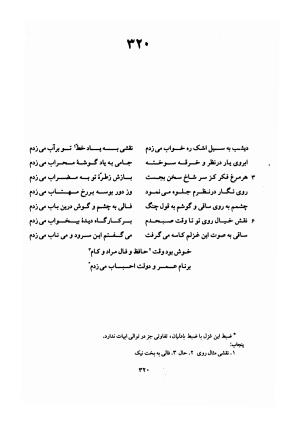 ۳۲۰
دیشب به سیل اشک ره خواب می زدم نقشی به یاد خط تو برآب می زدم
ابروی یار درنظر و خرقه سوخته جامی به یاد گوشهٔ محراب می زدم
۳ هرمرغ فکر کز سر شاخ سخن بجست بازش ز طرّهٔ تو به مضراب می زدم
روی نگار درنظرم جلوه می نمود وز دور بوسه بررخ مهتاب می زدم
چشمم به روی ساقی و گوشم به قول چنگ فالی به چشم و گوش درین باب می زدم
۶ نقش خیال روی تو تا وقت صبحدم برکارگاه دیدهٔ بیخواب می زدم
ساقی به صوت این غزلم کاسه می گرفت می گفتم این سرود و می ناب می زدم
خوش بود وقت حافظ و فال مراد و کام
برنام عمر و دولت احباب می زدم
* ضبط این غزل با ضبط بادلیان، تفاوتی جز در توالی ابیات ندارد.
پنجاب:
۱. نقشی مثال روی ۲. حال ۳. فالی به بخت نیک
۳۲۰